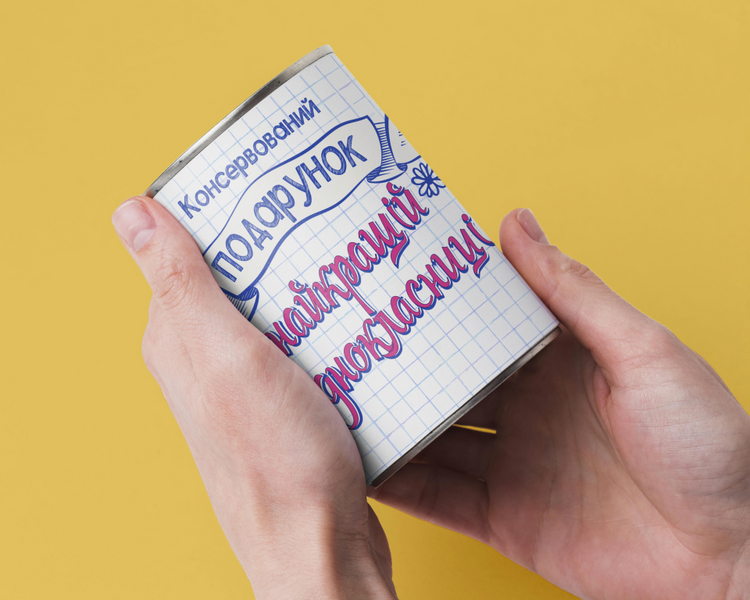 Консервований
подарунок
найкращій
днокласниці